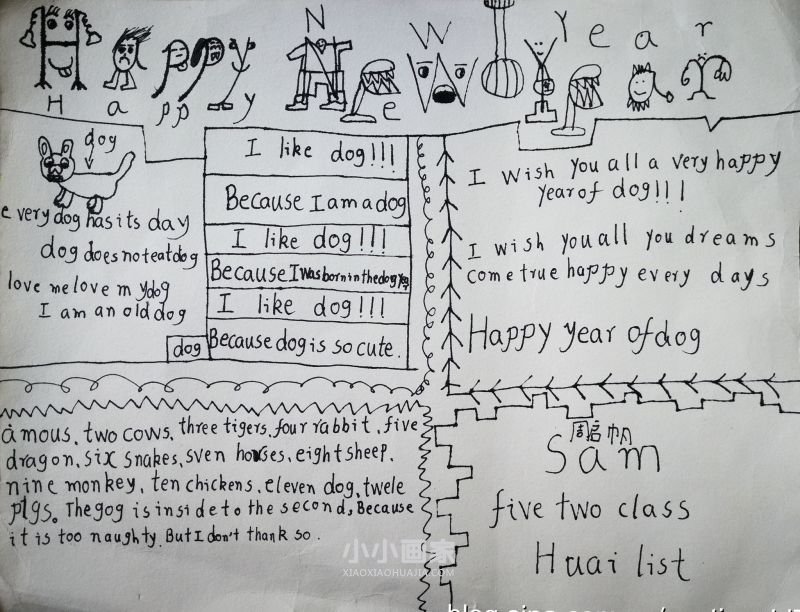 Happy New Year
dog
every dog has its day
dog does not eat dog
love me love my dog
I am an old dog
dog
I like dog!!!
Because I am a dog
I like dog!!!
Because I was born in the dog year
I like dog!!!
Because dog is so cute.
I wish you all a very happy
year of dog!!!
I wish you all you dreams
come true happy every days
Happy year of dog
a mous, two cows, three tigers, four rabbit, five
dragon, six snakes, sven horses, eight sheep,
nine monkey, ten chickens, eleven dog, twele
pigs. The gog is inside to the second, Because
it is too naughty. But I don't thank so.
周启帆
Sam
five two class
Huai list
小小画家
XIAOXIAOHUAJIA.COM